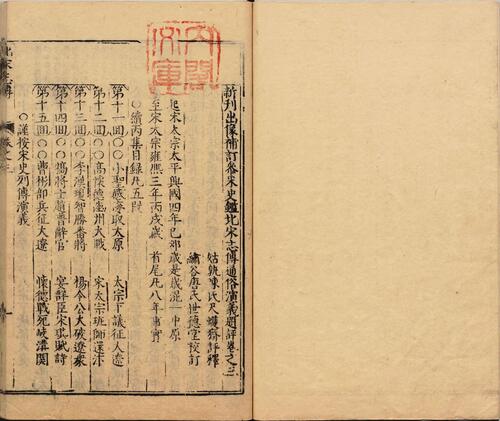 新刊出像補訂參采史鑑北宋志傳通俗演義題評卷之三
姑孰陳氏尺蠖齋評釋
繡谷唐氏世德堂校訂
起宋太宗太平興國四年己卯歲是歲混一中原
至宋太宗雍熙三年丙戌歲 首尾凡八年事實
○續丙集目錄凡五段
第十一回○○小聖感夢取太原 太宗下議征人遼
第十二回○○高懷德幽州大戰 宋太宗班師還汴
第十三回○○李漢瓊智勝番將 楊令公大破遼衆
第十四回○○犒將士趙普辭官 宴群臣宋琪賦詩
第十五回○○曹彬部兵征大遼 懷德戰死岐溝関
○謹按宋史列傳演義
內閣文庫